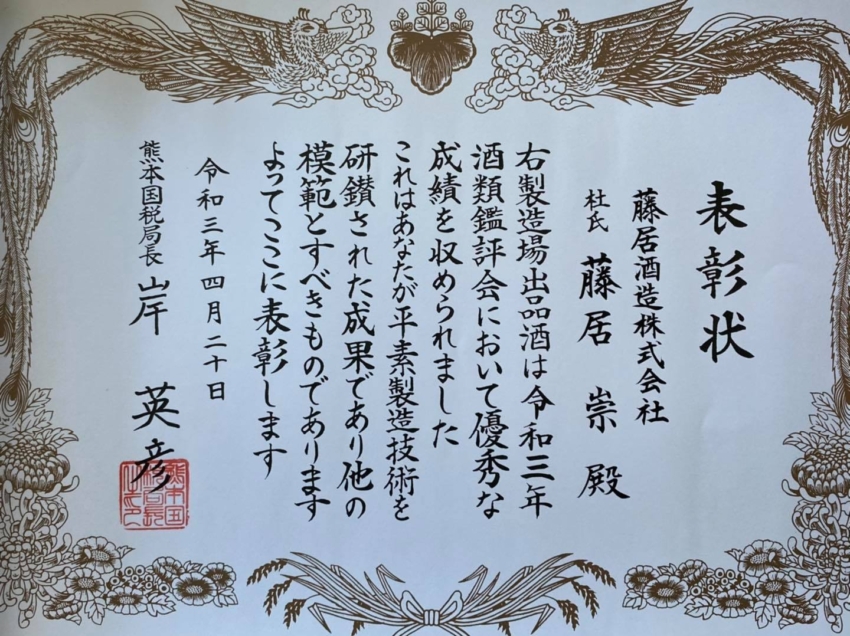 表彰状
藤居酒造株式会社
杜氏 藤居 崇 殿
右製造場出品酒は令和三年
酒類鑑評会において優秀な
成績を収められました
これはあなたが平素製造技術を
研鑽された成果であり他の
模範とすべきものであります
よってここに表彰します
令和三年四月二十日
熊本国税局長 岸 英彦